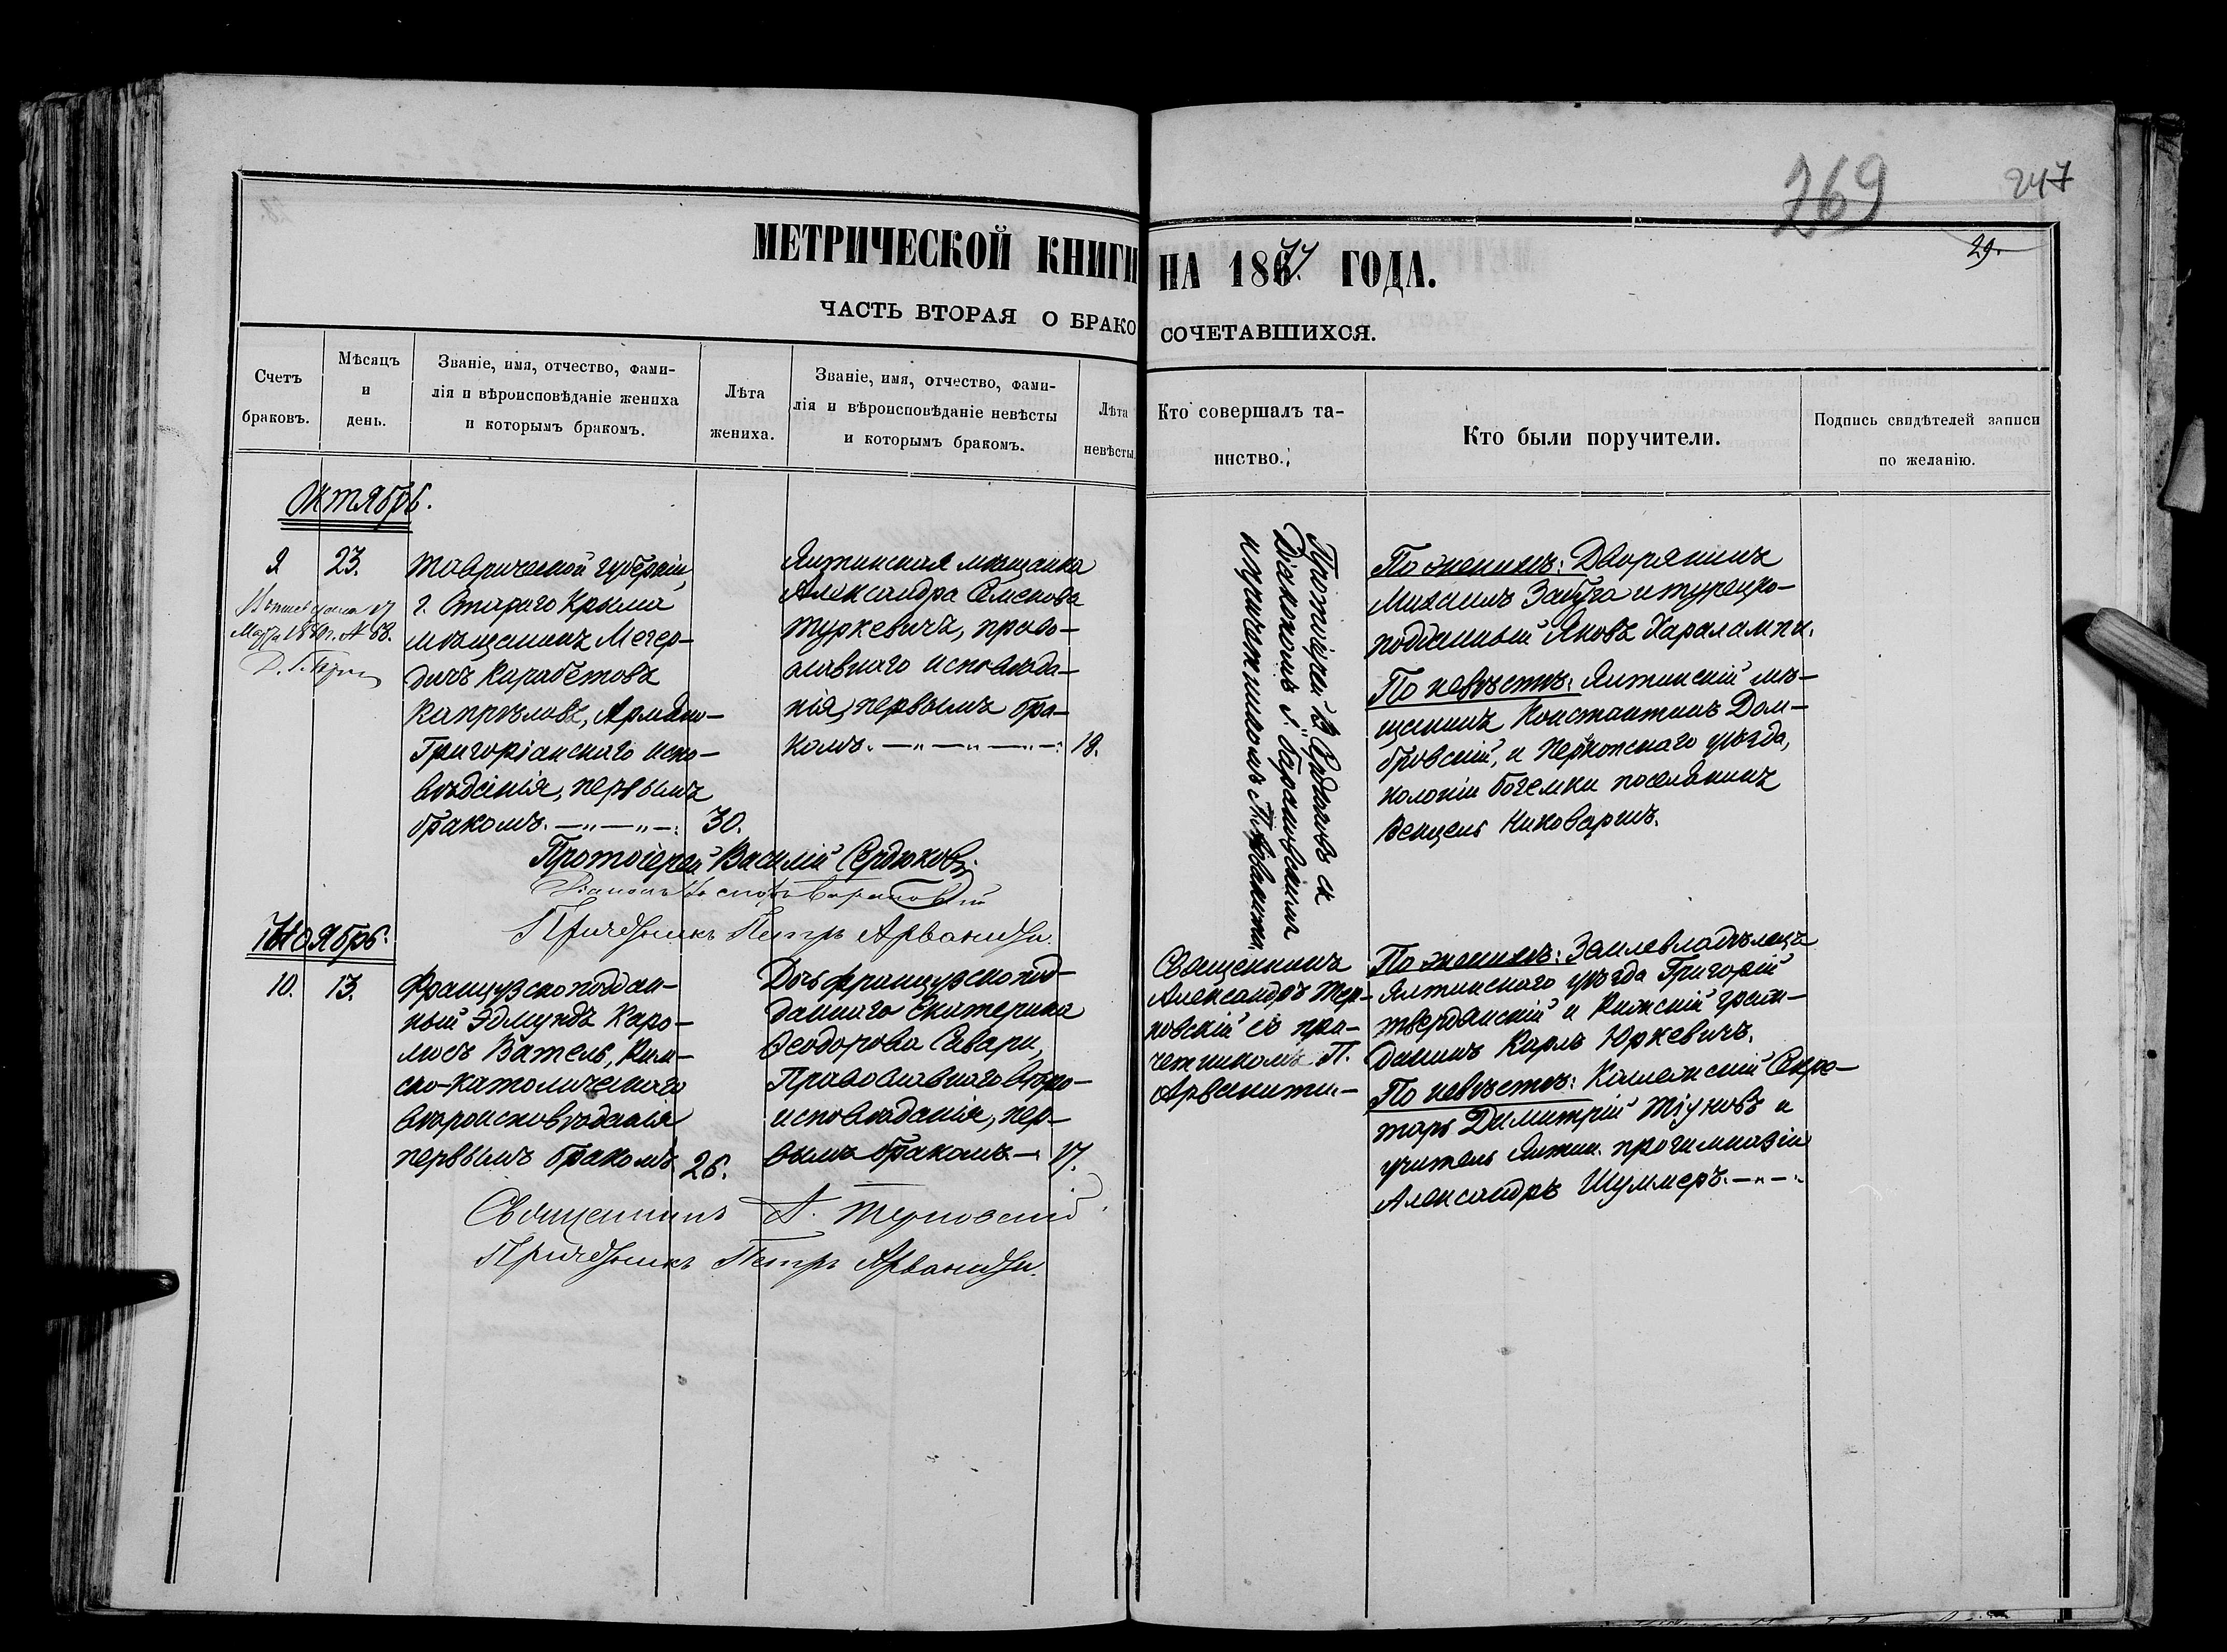 269
247
29.
МЕТРИЧЕСКОЙ КНИГИ НА 1877 ГОДА.
ЧАСТЬ ВТОРАЯ О БРАКОСОЧЕТАВШИХСЯ.
Счетъ
браковъ.
Мѣсяцъ
и
день.
Званіе, имя, отчество, фами-
лія и вѣроисповѣданіе жениха
и которымъ бракомъ.
Лѣта
жениха.
Званіе, имя, отчество, фами-
лія и вѣроисповѣданіе невѣсты
и которымъ бракомъ.
Лѣта
невѣсты.
Кто совершалъ та-
инство.
Кто были поручители.
Подпись свидѣтелей записи
по желанію.
Октябрь.
9
23.
Марта № 68.
Таврической губерніи
г. Стараго Крыма
мѣщанинъ Мегер-
дичъ Карабетовъ
Капрѣловъ, Армяно-
Григоріанскаго испо-
вѣданія, первымъ
бракомъ. —„—„—:
30.
Ялтинская мѣщанка
Александра Семенова
Туркевичъ, право-
славнаго исповѣда-
нія, первымъ бра-
комъ. —„—„—„—:
18.
Протоіерей В. Сердюковъ съ
Діакономъ І. Барановскимъ
и причетникомъ П. Арванити.
По женихѣ: Дворянинъ
Михаилъ Забуга и турецко-
подданный Яковъ Харалампи.
По невѣстѣ: Ялтинскій мѣ-
щанинъ Константинъ Дом-
бровскій, и Перкопскаго уѣзда,
колоніи Богемки поселянинъ
Венцель Николаришъ.
Протоіерей Василій Сердюковъ
Діаконъ Іосифъ Барановскій
Причетникъ Петръ Арванити.
Ноябрь.
10.
13.
Французскоподдан-
ный Эдмундъ Каро-
люсъ Ватель, Рим-
ско-католическаго
вѣроисповѣданія
первымъ бракомъ
26.
Дочь французскопод-
даннаго Екатерина
Ѳеодорова Савари,
Православнаго вѣро-
исповѣданія, пер-
вымъ бракомъ—
17.
Священникъ
Александръ Тер-
новскій съ при-
четникомъ П.
Арванити.—
По женихѣ: Землевладѣлецъ
Ялтинскаго уѣзда Григорій
Твердянскій и Рижскій граж-
данинъ Карлъ Юркевичъ.
По невѣстѣ: Коллежскій Секре-
тарь Димитрій Тіуновъ и
учитель Ялтин. прогимназіи
Александръ Шуммеръ.—„—:
Священникъ А. Терновскій
Причетникъ Петръ Арванити.